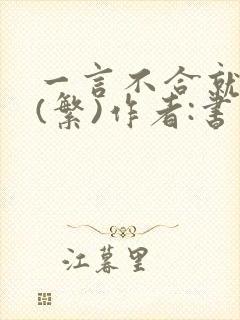 一言不合就
(繁)作者:書
江暮里